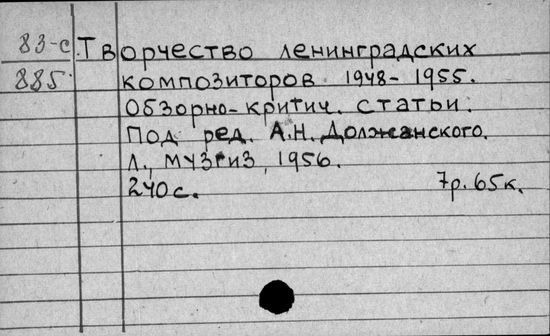 83-с Творчество ленинградских
885 композиторов 1948-1955.
Обзорно-критич. статьи.
Под ред. А.Н. Должанского.
Л., Музгиз, 1956.
240с. 7р. 65к.